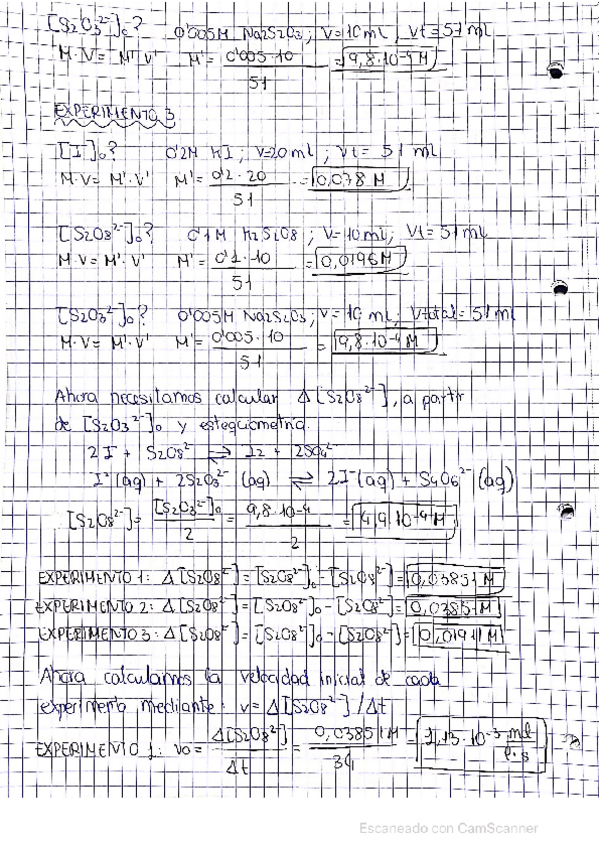 [S2O3²⁻]₀? 0'005M Na2S2O3; V=10ml, Vt=51ml
M·V = M'·V' M' = 0'005·10 / 51 = 9,8·10⁻⁴ M
EXPERIMENTO 3
[I⁻]₀? 0'2M KI; V=20ml; Vt= 51 ml
M·V= M'·V' M' = 0'2·20 / 51 = 0,078 M
[S2O8²⁻]₀? 0'1M K2S2O8; V=10ml; Vt=51ml
M·V= M'·V' M' = 0'1·10 / 51 = 0,0196M
[S2O3²⁻]₀? 0'005M Na2S2O3; V=10 ml; Vtotal=51ml
M·V= M'·V' M' = 0'005·10 / 51 = 9,8·10⁻⁴ M
Ahora necesitamos calcular Δ[S2O8²⁻], a partir
de [S2O3²⁻]₀ y estequiometría.
2I⁻ + S2O8²⁻ ⇌ I2 + 2SO4²⁻
(aq) + 2S2O3²⁻ (aq) ⇌ 2I⁻(aq) + S4O6²⁻ (aq)
[S2O8²⁻]= [S2O3²⁻]₀ / 2 = 9,8·10⁻⁴ / 2 = 4,9·10⁻⁴ M
EXPERIMENTO 1: Δ[S2O8²⁻] = [S2O8²⁻]₀ - [S2O8²⁻] = 0,03851 M
EXPERIMENTO 2: Δ[S2O8²⁻] = [S2O8²⁻]₀ - [S2O8²⁻] = 0,0385 M
EXPERIMENTO 3: Δ[S2O8²⁻] = [S2O8²⁻]₀ - [S2O8²⁻] = 0,01911 M
Ahora calculamos la velocidad inicial de cada
experimento mediante: v = Δ[S2O8²⁻] / Δt
EXPERIMENTO 1: v₀ = Δ[S2O8²⁻] / Δt = 0,03851 M / 34 = 1,13·10⁻³ mol / l·s ⇒
Escaneado con CamScanner